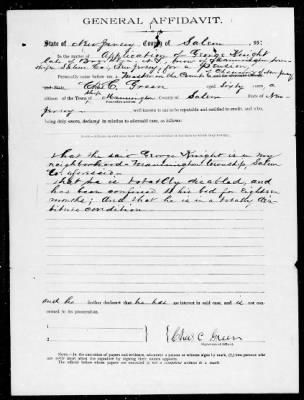 GENERAL AFFIDAVIT.
State of New Jersey County of Salem, ss:
In the matter of Application of George Knight
late of
Salem Co., New Jersey, for a Pension
Personally came before me, a
Chas C. Green aged sixty years, a
citizen of the Town of Mannington County of Salem State of New
Jersey well known to me to be reputable and entitled to credit, and who,
being duly sworn, declared in relation to aforesaid case, as follows:
That the said George Knight is in my
neighborhood Mannington township, Salem
Co. aforesaid.
that he is totally disabled, and
has been confined to his bed for eighteen
months; And that he is in a totally des-
titute condition
and he further declares that he has no interest in said case, and is not con-
cerned in its prosecution.
1
2
Chas C Green
Signature of Affiant.
NOTE.—In the execution of papers and evidence, whenever a person or witness signs by mark, (X) two persons who
can write must attest the signature by signing their names opposite.
The official before whom papers are executed is not a competent witness to a mark.